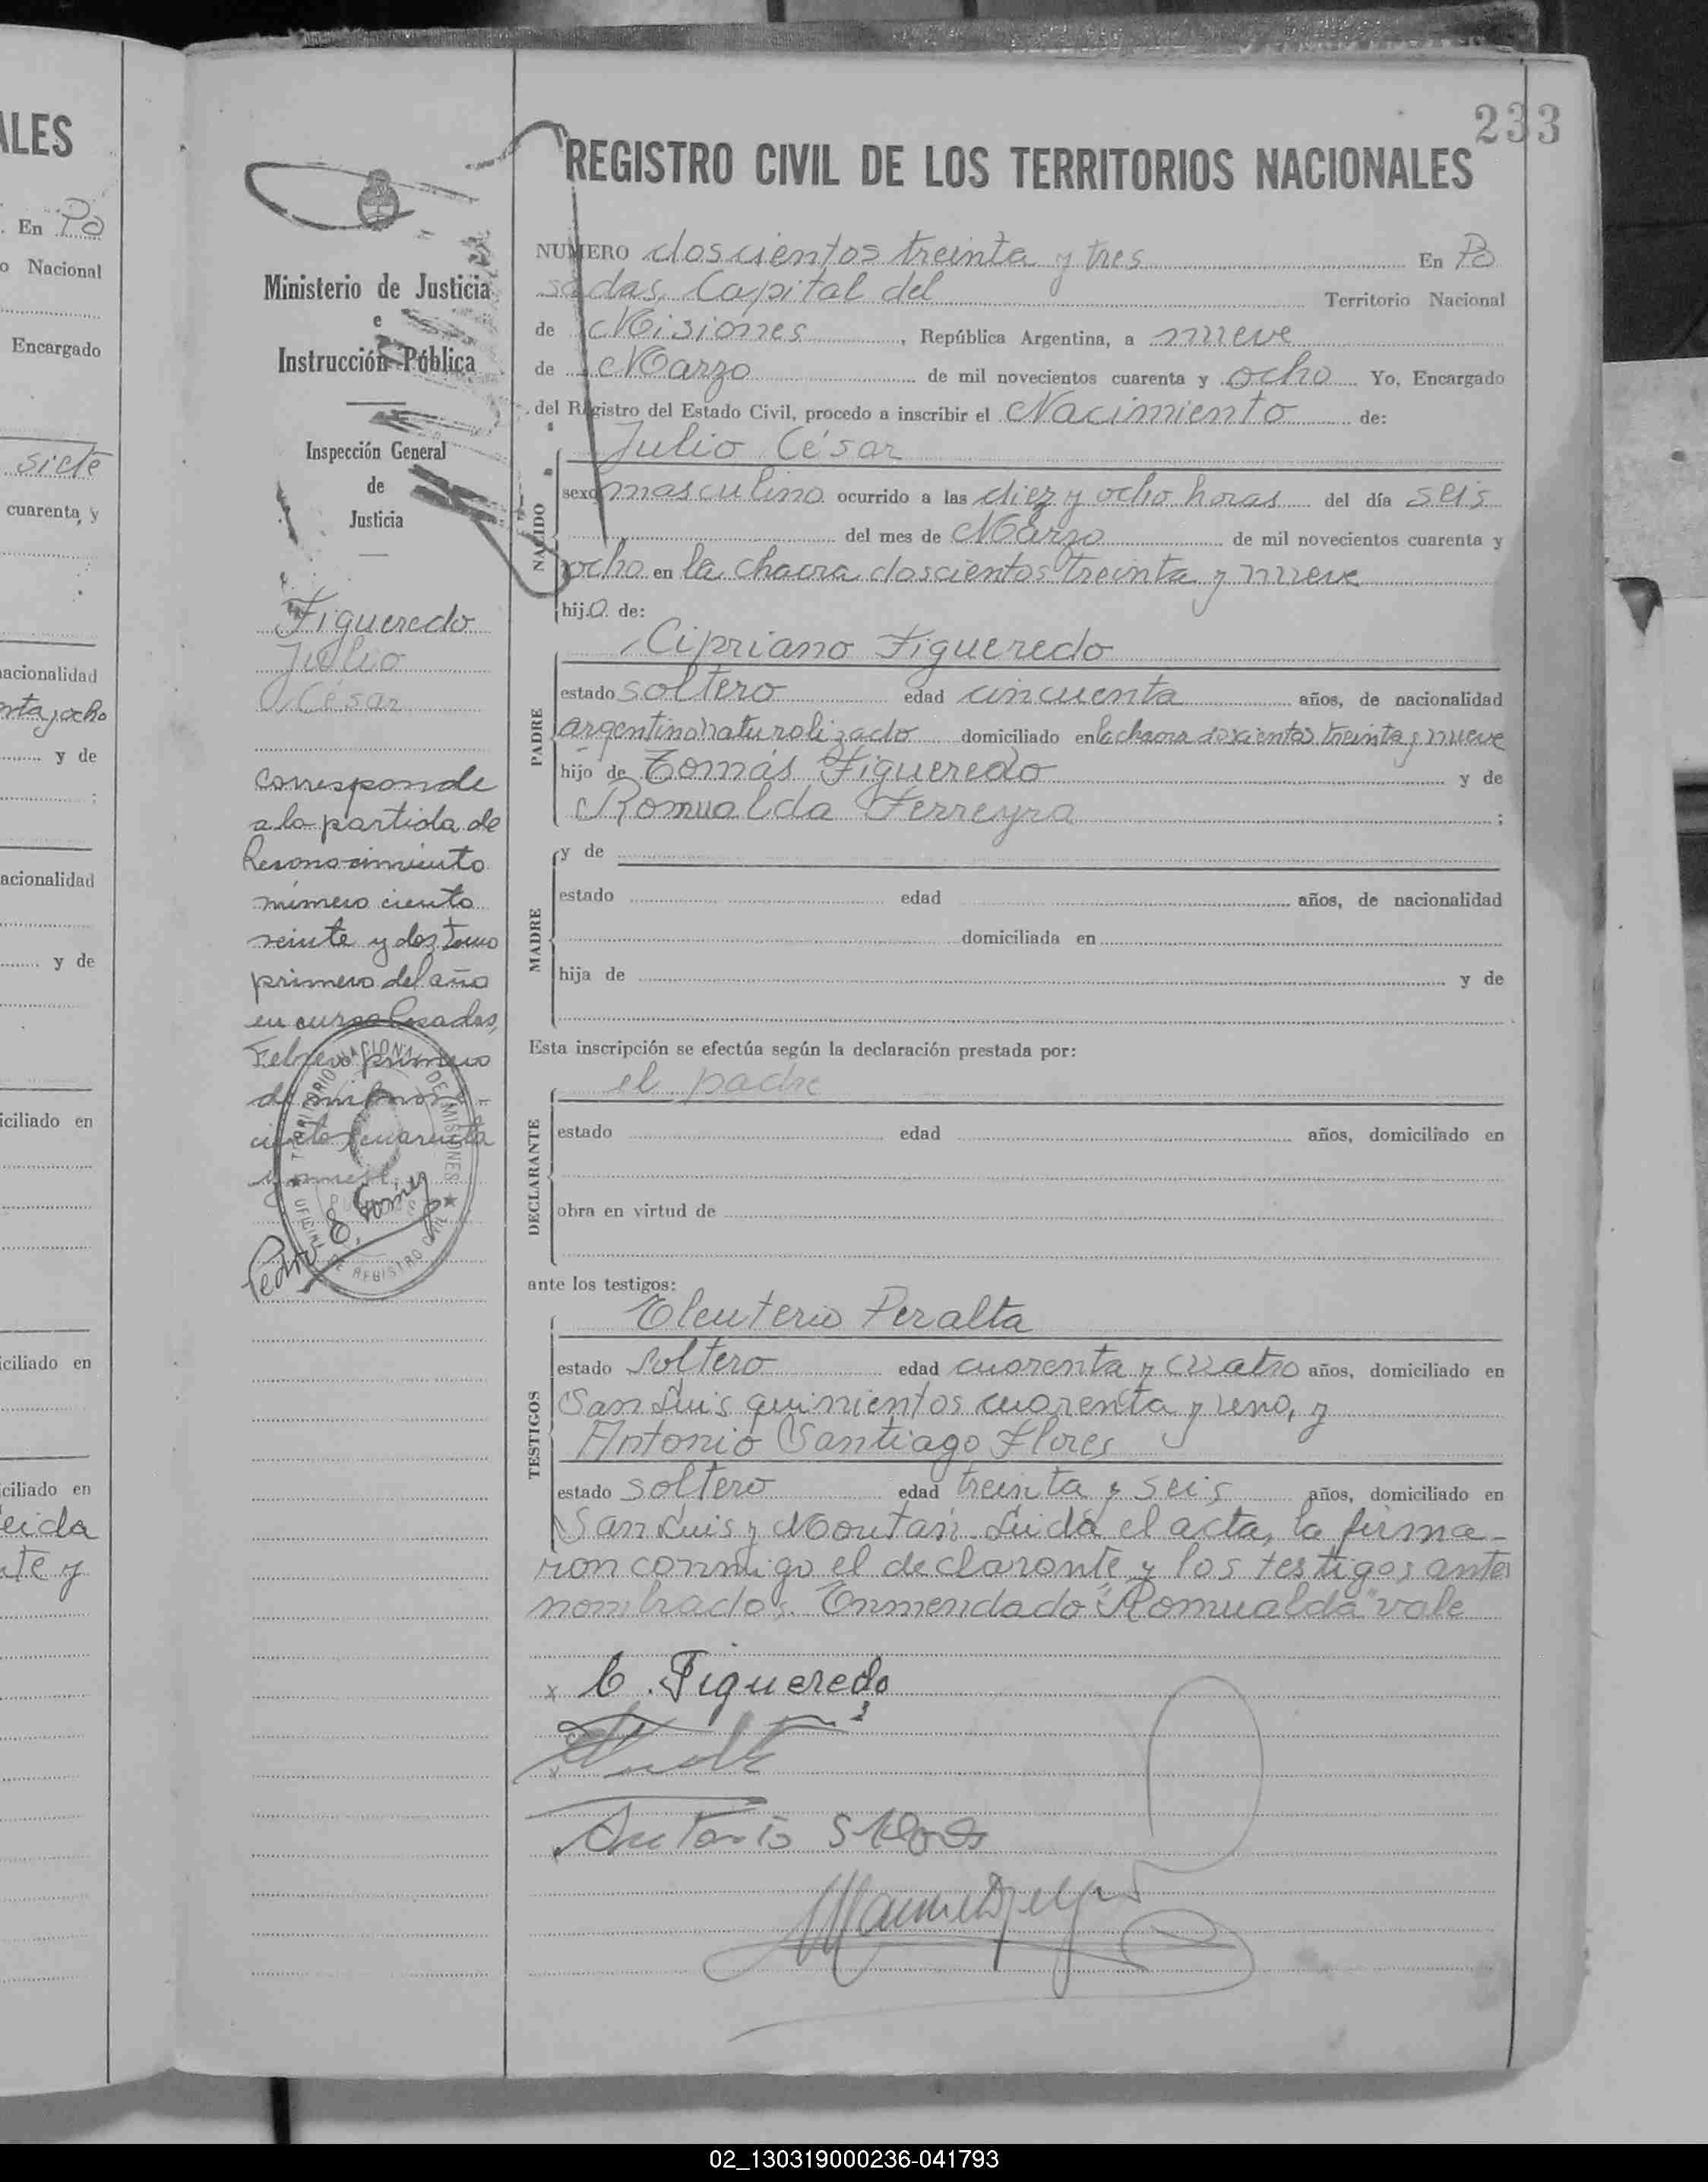 ALES
. En Po
o Nacional
Encargado
siete
cuarenta y
acionalidad
nta y ocho
y de
;
acionalidad
y de
iciliado en
iciliado en
ciliado en
leida
nte y
233
Ministerio de Justicia
e
Instrucción Pública
Inspección General
de
Justicia
Figueredo
Julio
César
Corresponde
a la partida de
Reconocimiento
número ciento
veinte y dos, tomo
primero del año
en curso. Posadas,
Febrero primero
de mil nove
cientos cuarenta
y nueve.
TERRITORIO NACIONAL DE MISIONES
OFICINA DE REGISTRO CIVIL
Pedro E. Gomez
REGISTRO CIVIL DE LOS TERRITORIOS NACIONALES
NUMERO doscientos treinta y tres En Po
sadas, Capital del Territorio Nacional
de Misiones, República Argentina, a nueve
de Marzo de mil novecientos cuarenta y ocho Yo, Encargado
del Registro del Estado Civil, procedo a inscribir el Nacimiento de:
NACIDO
Julio César
sexo masculino ocurrido a las diez y ocho horas del día seis
del mes de Marzo de mil novecientos cuarenta y
ocho en la chacra doscientos treinta y nueve
hijo de:
PADRE
Cipriano Figueredo
estado soltero edad cincuenta años, de nacionalidad
argentino naturalizado domiciliado en la chacra doscientos treinta y nueve
hijo de Tomás Figueredo y de
Romualda Ferreyra ;
MADRE
y de
estado edad años, de nacionalidad
domiciliada en
hija de y de
Esta inscripción se efectúa según la declaración prestada por:
DECLARANTE
el padre
estado edad años, domiciliado en
obra en virtud de
ante los testigos:
TESTIGOS
Eleuterio Peralta
estado soltero edad cuarenta y cuatro años, domiciliado en
San Luis quinientos cuarenta y uno, y
Antonio Santiago Flores
estado soltero edad treinta y seis años, domiciliado en
San Luis y Moutan. Leida el acta, la firma-
ron conmigo el declarante y los testigos antes
nombrados. Enmendado "Romualda" vale
x C. Figueredo
Antonio S Flores
02_130319000236-041793